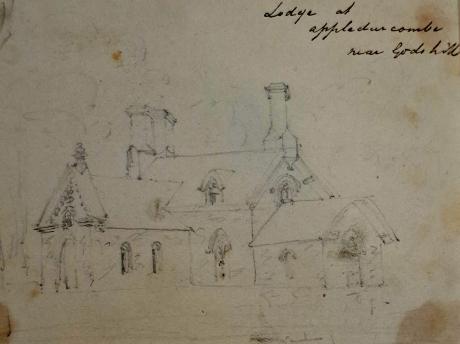 Lodge at
appledurcombe
near Godshill